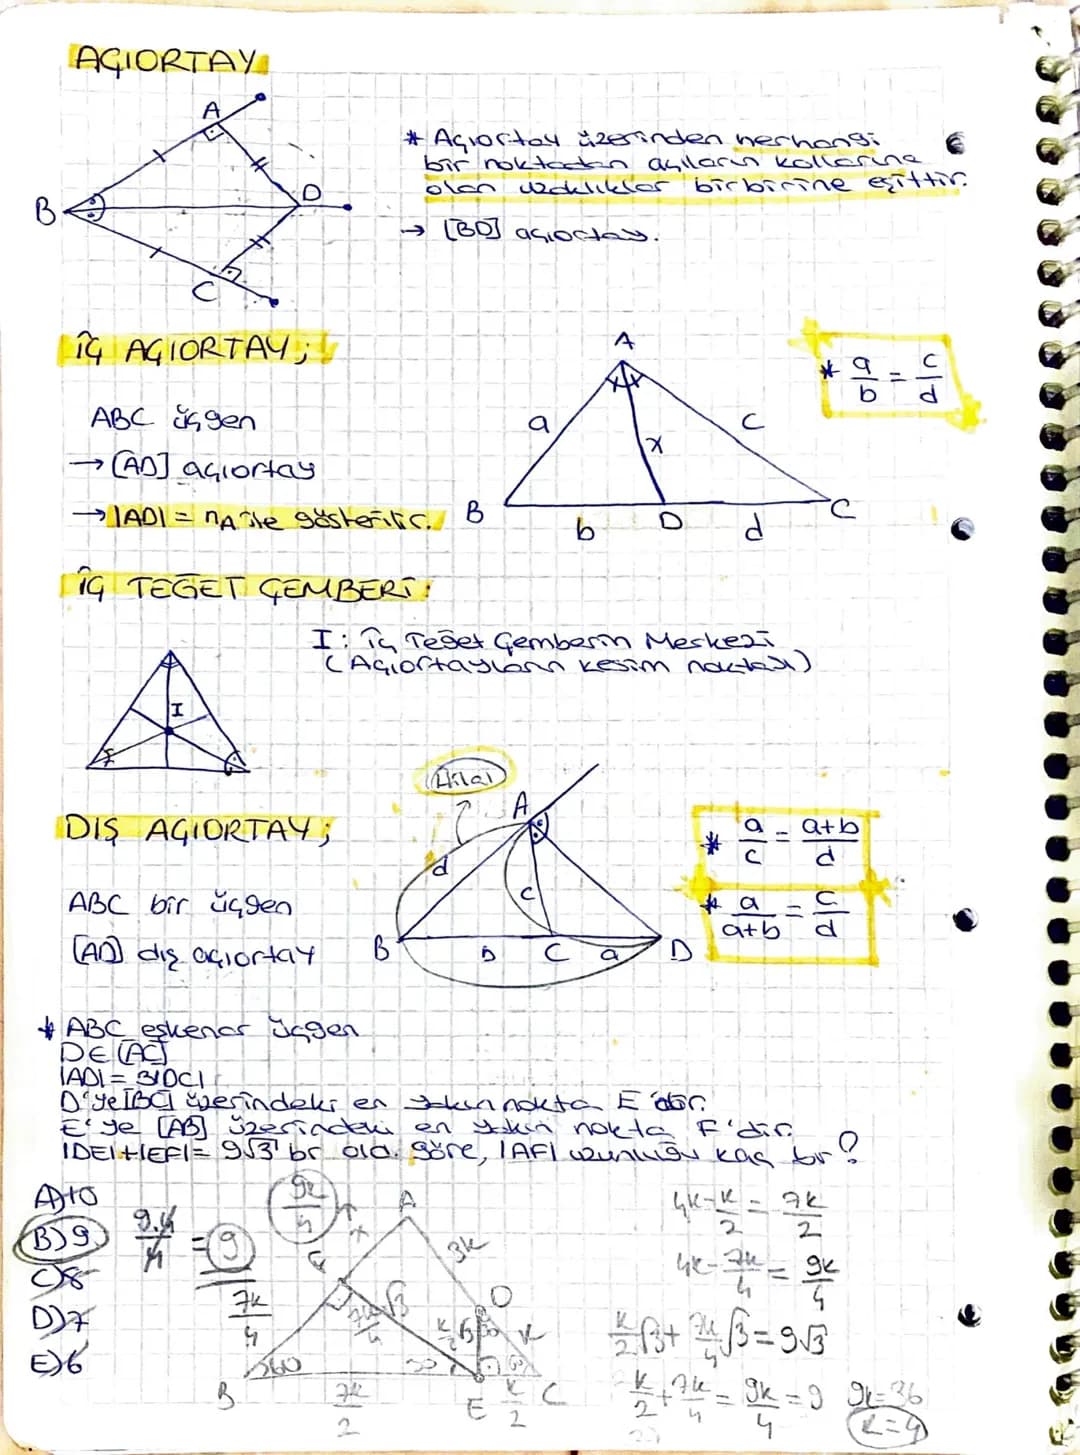 AÇIORTAY
A
B
D
C
* Açıortay üzerinden herhangi
bir noktadan açıların kollarına
olan uzaklıklar birbirine eşittir.
→ [BD] açıortay.
İÇ AÇIORTAY;
ABC üçgen
→ [AD] açıortay
→ |AD| = nA ile gösterilir.
A
a
x
c
B
b
D
d
C
* a/b = c/d
İÇ TEĞET ÇEMBERİ:
I : İç Teğet Çemberin Merkezi
(Açıortayların kesim noktası)
I
DIŞ AÇIORTAY;
ABC bir üçgen
[AD] dış açıortay
Hilal
A
d
c
B
b
C
a
D
* a/c = a+b/d
* a/a+b = c/d
* ABC eşkenar üçgen
D∈[AC]
|AD| = 3|DC|
D'ye [BC] üzerindeki en yakın nokta E'dir.
E'ye [AB] üzerindeki en yakın nokta F'dir.
|DE|+|EF| = 9√3 br old. göre, |AF| uzunluğu kaç br?
A) 10
B) 9
C) 8
D) 7
E) 6
9.4/4 = 9
9k/4
A
3k
D
k
7k/4
7k/4 √3
k/2 √3
60
30
30
60
B
7k/2
E
k/2
C
4k - k/2 = 7k/2
4k - 7k/4 = 9k/4
k/2 √3 + 7k/4 √3 = 9√3
k/2 + 7k/4 = 9k/4 = 9
9k = 36
k = 4